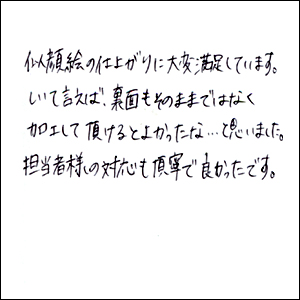 似顔絵の仕上がりに大変満足しています。
しいて言えば、裏面もそのままではなく
加工して頂けるとよかったな…と思いました。
担当者様の対応も丁寧で良かったです。